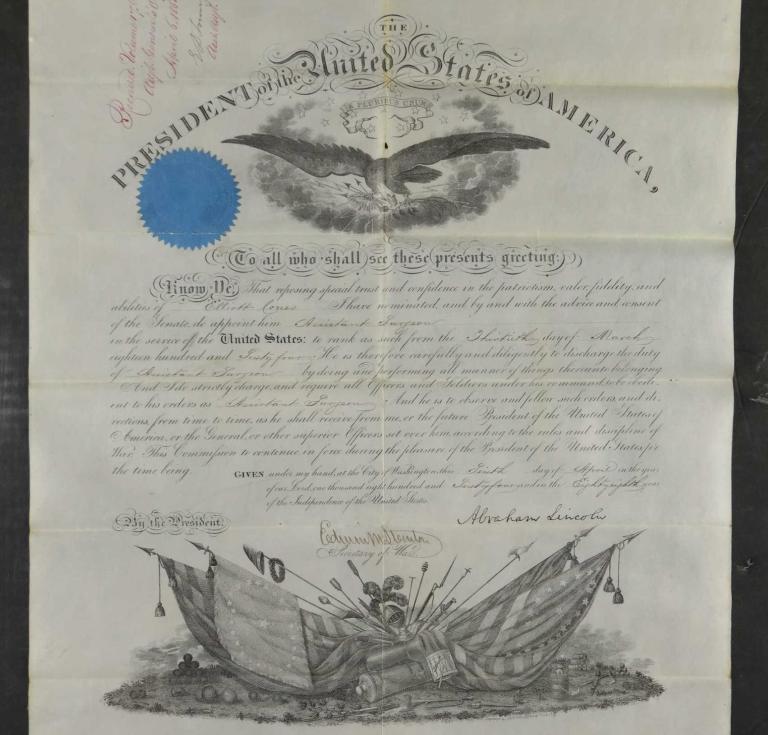 Recorded Volume
Adjt. General's O
April
THE
PRESIDENT of the United States of AMERICA,
E PLURIBUS UNUM
To all who shall see these presents greeting:
Know Ye, That reposing special trust and confidence in the patriotism, valor, fidelity, and
abilities of Elliott Coues I have nominated, and by and with the advice and consent
of the Senate, do appoint him Assistant Surgeon
in the service of the United States: to rank as such from the Thirtieth day of March
eighteen hundred and Sixty four He is therefore carefully and diligently to discharge the duty
of Assistant Surgeon by doing and performing all manner of things thereunto belonging
And I do strictly charge, and require all Officers and Soldiers under his command, to be obedi-
ent to his orders as Assistant Surgeon And he is to observe and follow such orders, and di-
rections, from time to time, as he shall receive from me, or the future President of the United States of
America, or the General, or other superior Officers set over him, according to the rules and discipline of
War. This Commission to continue in force during the pleasure of the President of the United States for
the time being.
GIVEN under my hand, at the City of Washington, this day of April in the year
of our Lord, one thousand eight hundred and Sixty four and in the Eighty eighth year
of the Independence of the United States.
By the President.
Abraham Lincoln
Edwin M Stanton
Secretary of War.